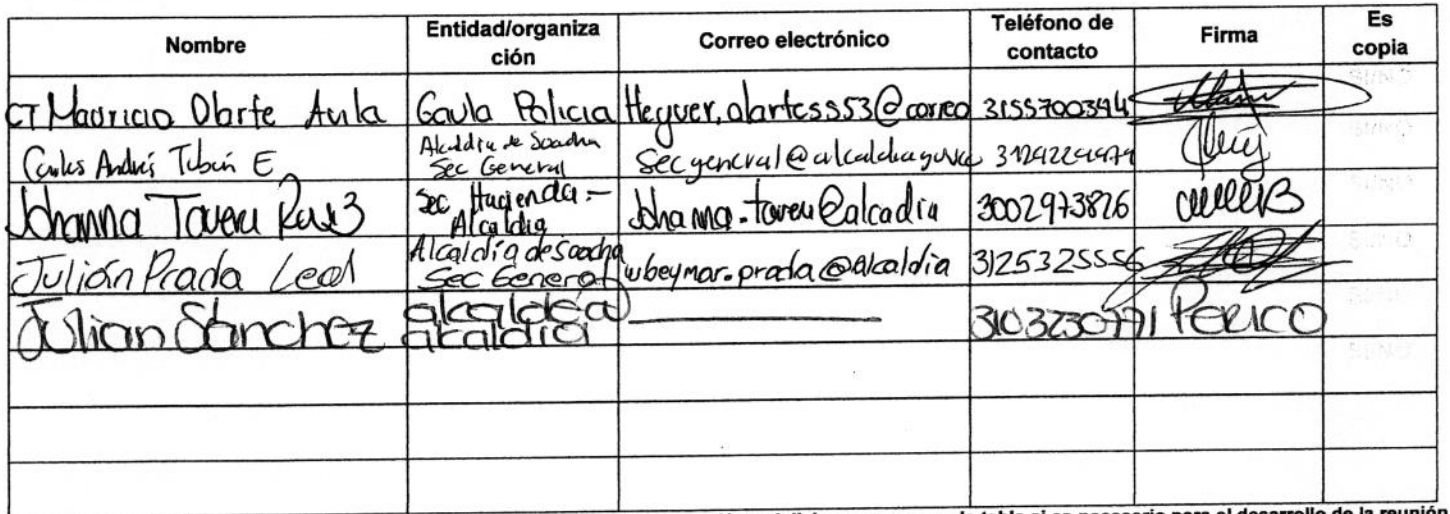 Nombre Entidad/organiza ción Correo electrónico Teléfono de contacto Firma Es copia
CT Mauricio Olarte Avila Gaula Policia Heyver.olartesss53@correo 3155700394
Carlos Andrés Tibún E Alcaldia de Soacha Sec General Secgeneral@alcaldia
Johanna Tovera Ruiz Sec Hacienda - Alcaldia Johanna.tovera@alcadia 3002973826
Julián Prada Leal Alcaldía de soacha Sec General wbeymar.prada@alcaldia 3125325556
Julian Sanchez alcaldia alcaldia 3103230771 PERICO
la tabla si es necesario para el desarrollo de la reunión